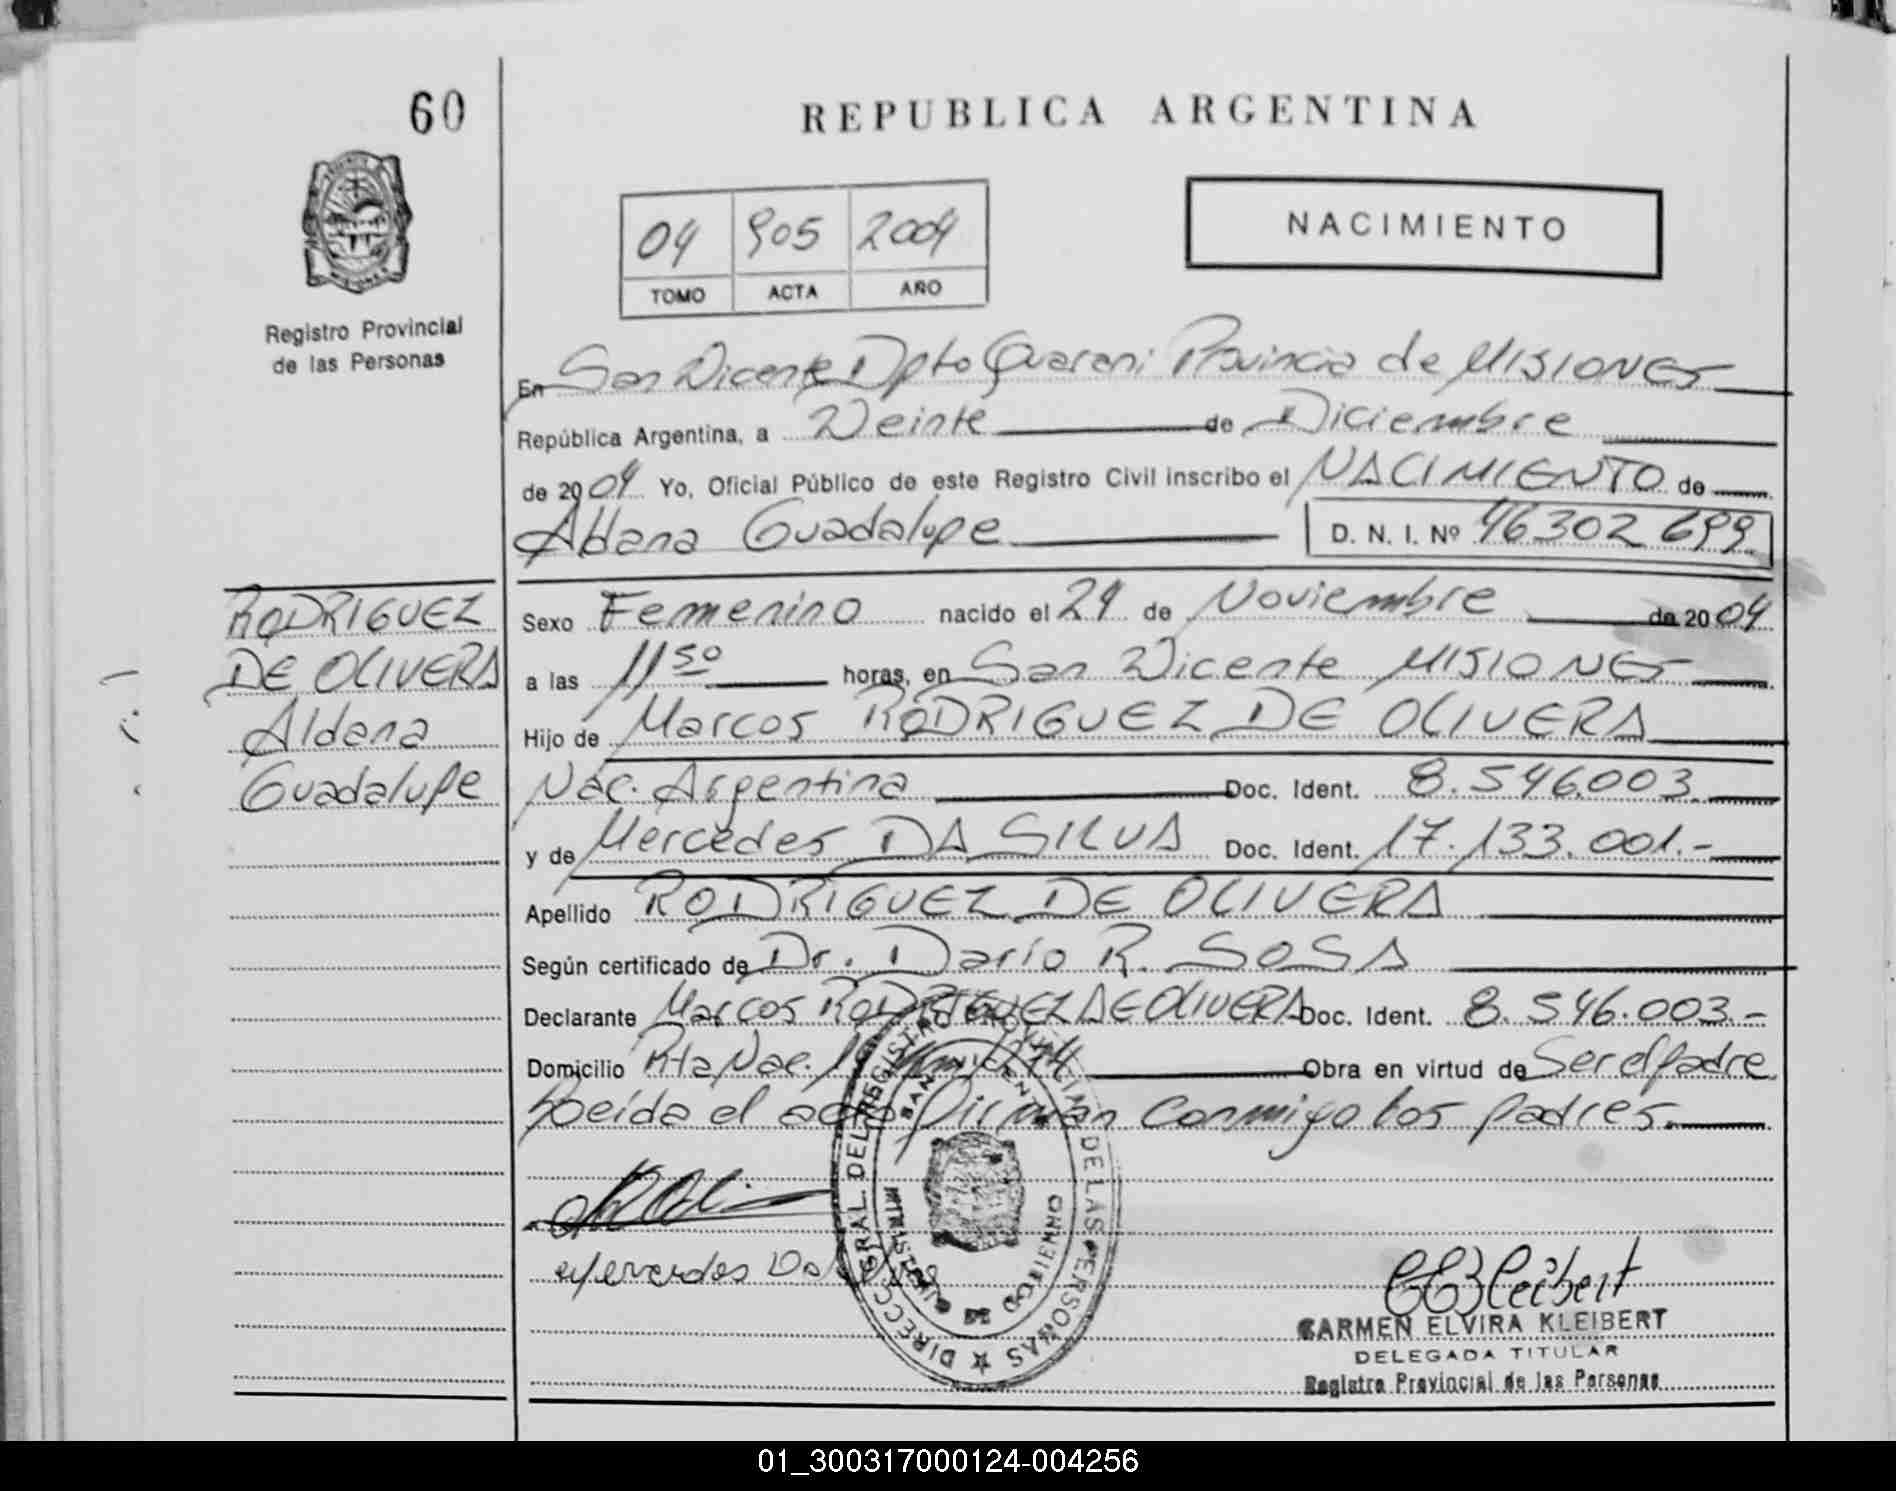 60
REPUBLICA ARGENTINA
Registro Provincial
de las Personas
04 905 2004
TOMO ACTA AÑO
NACIMIENTO
En San Vicente Dpto Guarani Provincia de MISIONES
República Argentina, a Veinte de Diciembre
de 2004 Yo, Oficial Público de este Registro Civil inscribo el NACIMIENTO de
Aldana Guadalupe D. N. I. Nº 46302699
RODRIGUEZ
DE OLIVERA
Aldana
Guadalupe
Sexo Femenino nacido el 24 de Noviembre de 2004
a las 11 50 horas, en San Vicente MISIONES
Hijo de Marcos RODRIGUEZ DE OLIVERA
Nac. Argentina Doc. Ident. 8.546.003
y de Mercedes DA SILVA Doc. Ident. 17.133.001.-
Apellido RODRIGUEZ DE OLIVERA
Según certificado de Dr. Darío R. SOSA
Declarante Marcos RODRIGUEZ DE OLIVERA Doc. Ident. 8.546.003.-
Domicilio Rta Nac. Obra en virtud de Ser el padre
Leída el acta firman conmigo los padres.
DIRECC GRAL DEL REGISTRO PROVINCIAL DE LAS PERSONAS
SAN VICENTE
MINISTERIO DE GOBIERNO
CEKleibert
CARMEN ELVIRA KLEIBERT
DELEGADA TITULAR
Registro Provincial de las Personas
01_300317000124-004256